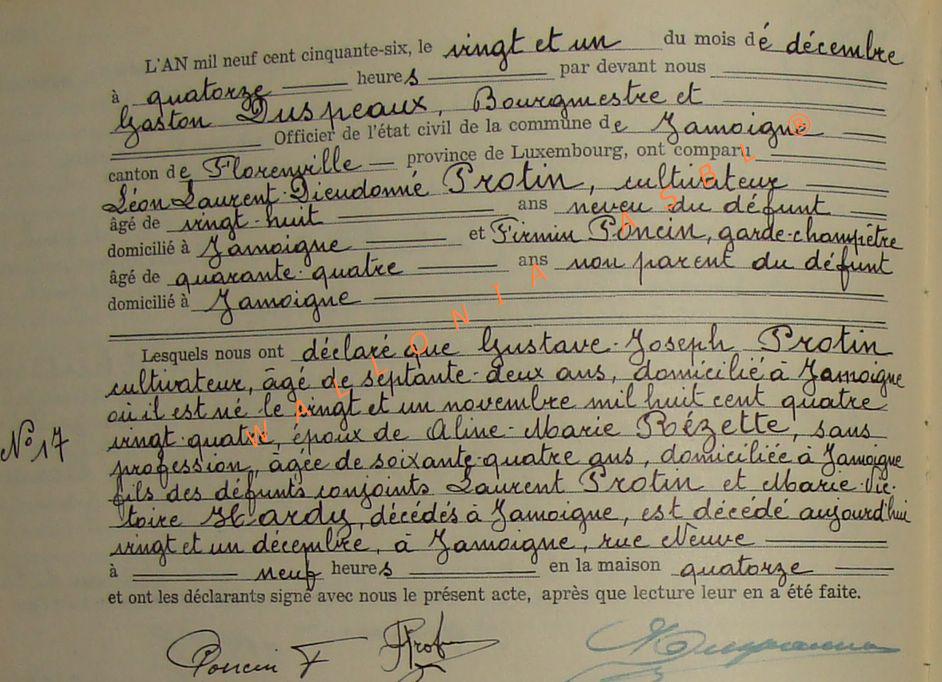 L'AN mil neuf cent cinquante-six, le vingt et un du mois de décembre
à quatorze heures par devant nous
Gaston Duspeaux, Bourgmestre et
Officier de l'état civil de la commune de Jamoigne
canton de Florenville province de Luxembourg, ont comparu
Léon Laurent Dieudonné Protin, cultivateur
âgé de vingt-huit ans neveu du défunt
domicilié à Jamoigne et Firmin Poncin, garde-champêtre
âgé de quarante-quatre ans non parent du défunt
domicilié à Jamoigne
Lesquels nous ont déclaré que Gustave-Joseph Protin
cultivateur, âgé de septante-deux ans, domicilié à Jamoigne
où il est né le vingt et un novembre mil huit cent quatre
vingt-quatre, époux de Aline-Marie Rézette, sans
profession, âgée de soixante-quatre ans, domiciliée à Jamoigne
N° 17
fils des défunts conjoints Laurent Protin et Marie-Vic-
toire Hardy, décédés à Jamoigne, est décédé aujourd'hui
vingt et un décembre, à Jamoigne, rue Neuve
à neuf heures en la maison quatorze
et ont les déclarants signé avec nous le présent acte, après que lecture leur en a été faite.
Poncin F Prot
WALLONIA ASBL ®